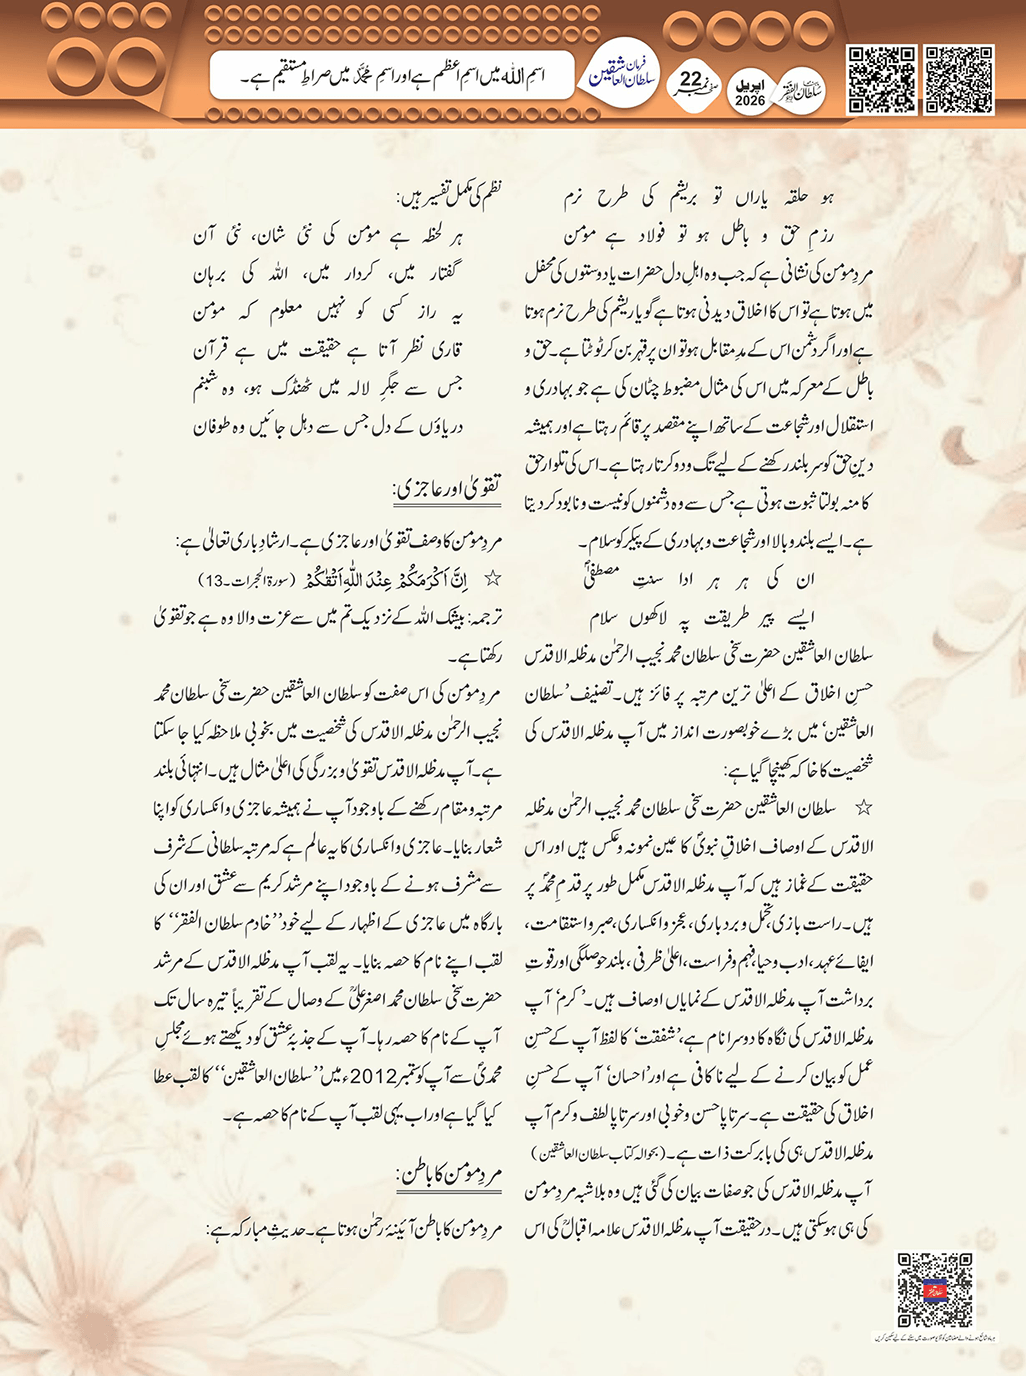 اسمِ اللہ میں اسمِ اعظم ہے اور اسمِ محمدؐ میں صراطِ مستقیم ہے۔
فرمان سلطان العاشقین
صفحہ نمبر 22
اپریل 2026
سلطان الفقر
ہو حلقہ یاراں تو بریشم کی طرح نرم
رزمِ حق و باطل ہو تو فولاد ہے مومن
مردِ مومن کی نشانی ہے کہ جب وہ اہلِ دل حضرات یا دوستوں کی محفل
میں ہوتا ہے تو اس کا اخلاق دیدنی ہوتا ہے گویا ریشم کی طرح نرم ہوتا
ہے اور اگر دشمن اس کے مدِ مقابل ہو تو ان پر قہر بن کر ٹوٹتا ہے۔ حق و
باطل کے معرکہ میں اس کی مثال مضبوط چٹان کی ہے جو بہادری و
استقلال اور شجاعت کے ساتھ اپنے مقصد پر قائم رہتا ہے اور ہمیشہ
دینِ حق کو سر بلند رکھنے کے لیے تگ و دو کرتا رہتا ہے۔ اس کی تلوار حق
کا منہ بولتا ثبوت ہوتی ہے جس سے وہ دشمنوں کو نیست و نابود کر دیتا
ہے۔ ایسے بلند و بالا اور شجاعت و بہادری کے پیکر کو سلام۔
ان کی ہر ہر ادا سنتِ مصطفیؐ
ایسے پیر طریقت پہ لاکھوں سلام
سلطان العاشقین حضرت سخی سلطان محمد نجیب الرحمٰن مدظلہ الاقدس
حسنِ اخلاق کے اعلیٰ ترین مرتبہ پر فائز ہیں۔ تصنیف ’سلطان
العاشقین‘ میں بڑے خوبصورت انداز میں آپ مدظلہ الاقدس کی
شخصیت کا خاکہ کھینچا گیا ہے:
☆ سلطان العاشقین حضرت سخی سلطان محمد نجیب الرحمٰن مدظلہ
الاقدس کے اوصاف اخلاقِ نبویؐ کا عین نمونہ و عکس ہیں اور اس
حقیقت کے غماز ہیں کہ آپ مدظلہ الاقدس مکمل طور پر قدمِ محمدؐ پر
ہیں۔ راست بازی، تحمل و بردباری، عجز و انکساری، صبر و استقامت،
ایفائے عہد، ادب و حیا، فہم و فراست، اعلیٰ ظرفی، بلند حوصلگی اور قوتِ
برداشت آپ مدظلہ الاقدس کے نمایاں اوصاف ہیں۔ ’کرم‘ آپ
مدظلہ الاقدس کی نگاہ کا دوسرا نام ہے، ’شفقت‘ کا لفظ آپ کے حسنِ
عمل کو بیان کرنے کے لیے ناکافی ہے اور ’احسان‘ آپ کے حسنِ
اخلاق کی حقیقت ہے۔ سرتاپا حسن و خوبی اور سرتاپا لطف و کرم آپ
مدظلہ الاقدس ہی کی بابرکت ذات ہے۔ (بحوالہ کتاب سلطان العاشقین)
آپ مدظلہ الاقدس کی جو صفات بیان کی گئی ہیں وہ بلاشبہ مردِ مومن
کی ہی ہو سکتی ہیں۔ درحقیقت آپ مدظلہ الاقدس علامہ اقبالؒ کی اس
نظم کی مکمل تفسیر ہیں:
ہر لحظہ ہے مومن کی نئی شان، نئی آن
گفتار میں، کردار میں، اللہ کی برہان
یہ راز کسی کو نہیں معلوم کہ مومن
قاری نظر آتا ہے حقیقت میں ہے قرآن
جس سے جگرِ لالہ میں ٹھنڈک ہو، وہ شبنم
دریاؤں کے دل جس سے دہل جائیں وہ طوفان
تقویٰ اور عاجزی:
مردِ مومن کا وصف تقویٰ اور عاجزی ہے۔ ارشادِ باری تعالیٰ ہے:
☆ اِنَّ اَکْرَمَکُمْ عِنْدَ اللّٰہِ اَتْقٰکُمْ (سورۃ الحجرات۔13)
ترجمہ: بیشک اللہ کے نزدیک تم میں سے عزت والا وہ ہے جو تقویٰ
رکھتا ہے۔
مردِ مومن کی اس صفت کو سلطان العاشقین حضرت سخی سلطان محمد
نجیب الرحمٰن مدظلہ الاقدس کی شخصیت میں بخوبی ملاحظہ کیا جا سکتا
ہے۔ آپ مدظلہ الاقدس تقویٰ و بزرگی کی اعلیٰ مثال ہیں۔ انتہائی بلند
مرتبہ و مقام رکھنے کے باوجود آپ نے ہمیشہ عاجزی و انکساری کو اپنا
شعار بنایا۔ عاجزی و انکساری کا یہ عالم ہے کہ مرتبہ سلطانی کے شرف
سے مشرف ہونے کے باوجود اپنے مرشد کریم سے عشق اور ان کی
بارگاہ میں عاجزی کے اظہار کے لیے خود ’’خادم سلطان الفقر‘‘ کا
لقب اپنے نام کا حصہ بنایا۔ یہ لقب آپ مدظلہ الاقدس کے مرشد
حضرت سخی سلطان محمد اصغر علیؒ کے وصال کے تقریباً تیرہ سال تک
آپ کے نام کا حصہ رہا۔ آپ کے جذبۂ عشق کو دیکھتے ہوئے مجلسِ
محمدیؐ سے آپ کو ستمبر 2012ء میں ’’سلطان العاشقین‘‘ کا لقب عطا
کیا گیا ہے اور اب یہی لقب آپ کے نام کا حصہ ہے۔
مردِ مومن کا باطن:
مردِ مومن کا باطن آئینۂ رحمٰن ہوتا ہے۔ حدیثِ مبارکہ ہے: